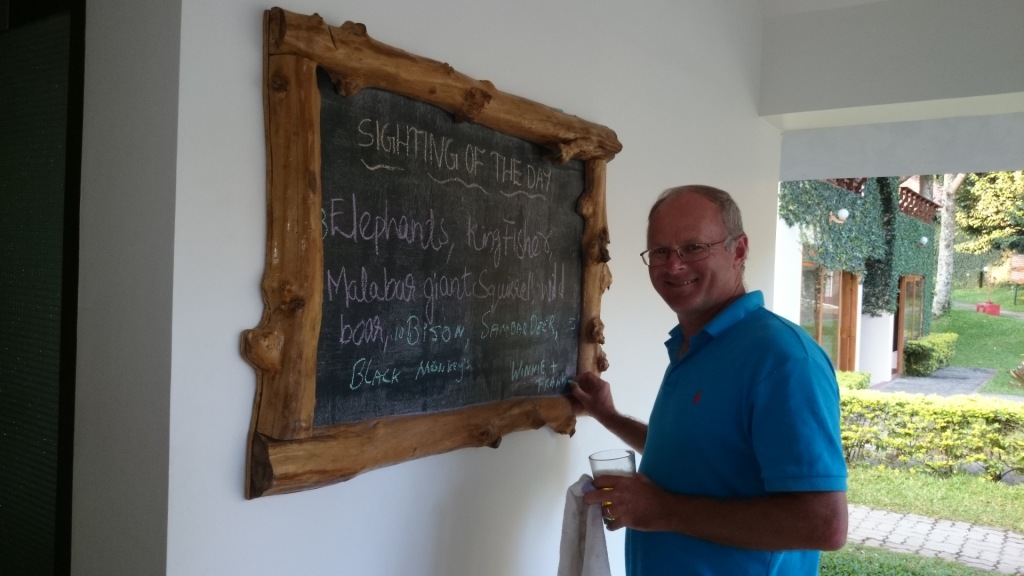 SIGHTING OF THE DAY
3 Elephants, King Fisher
Malabar giant Squirrel, wild
boar, 10 BISON, SAMBAR DEER,
BLACK MONKEY WINNIE +